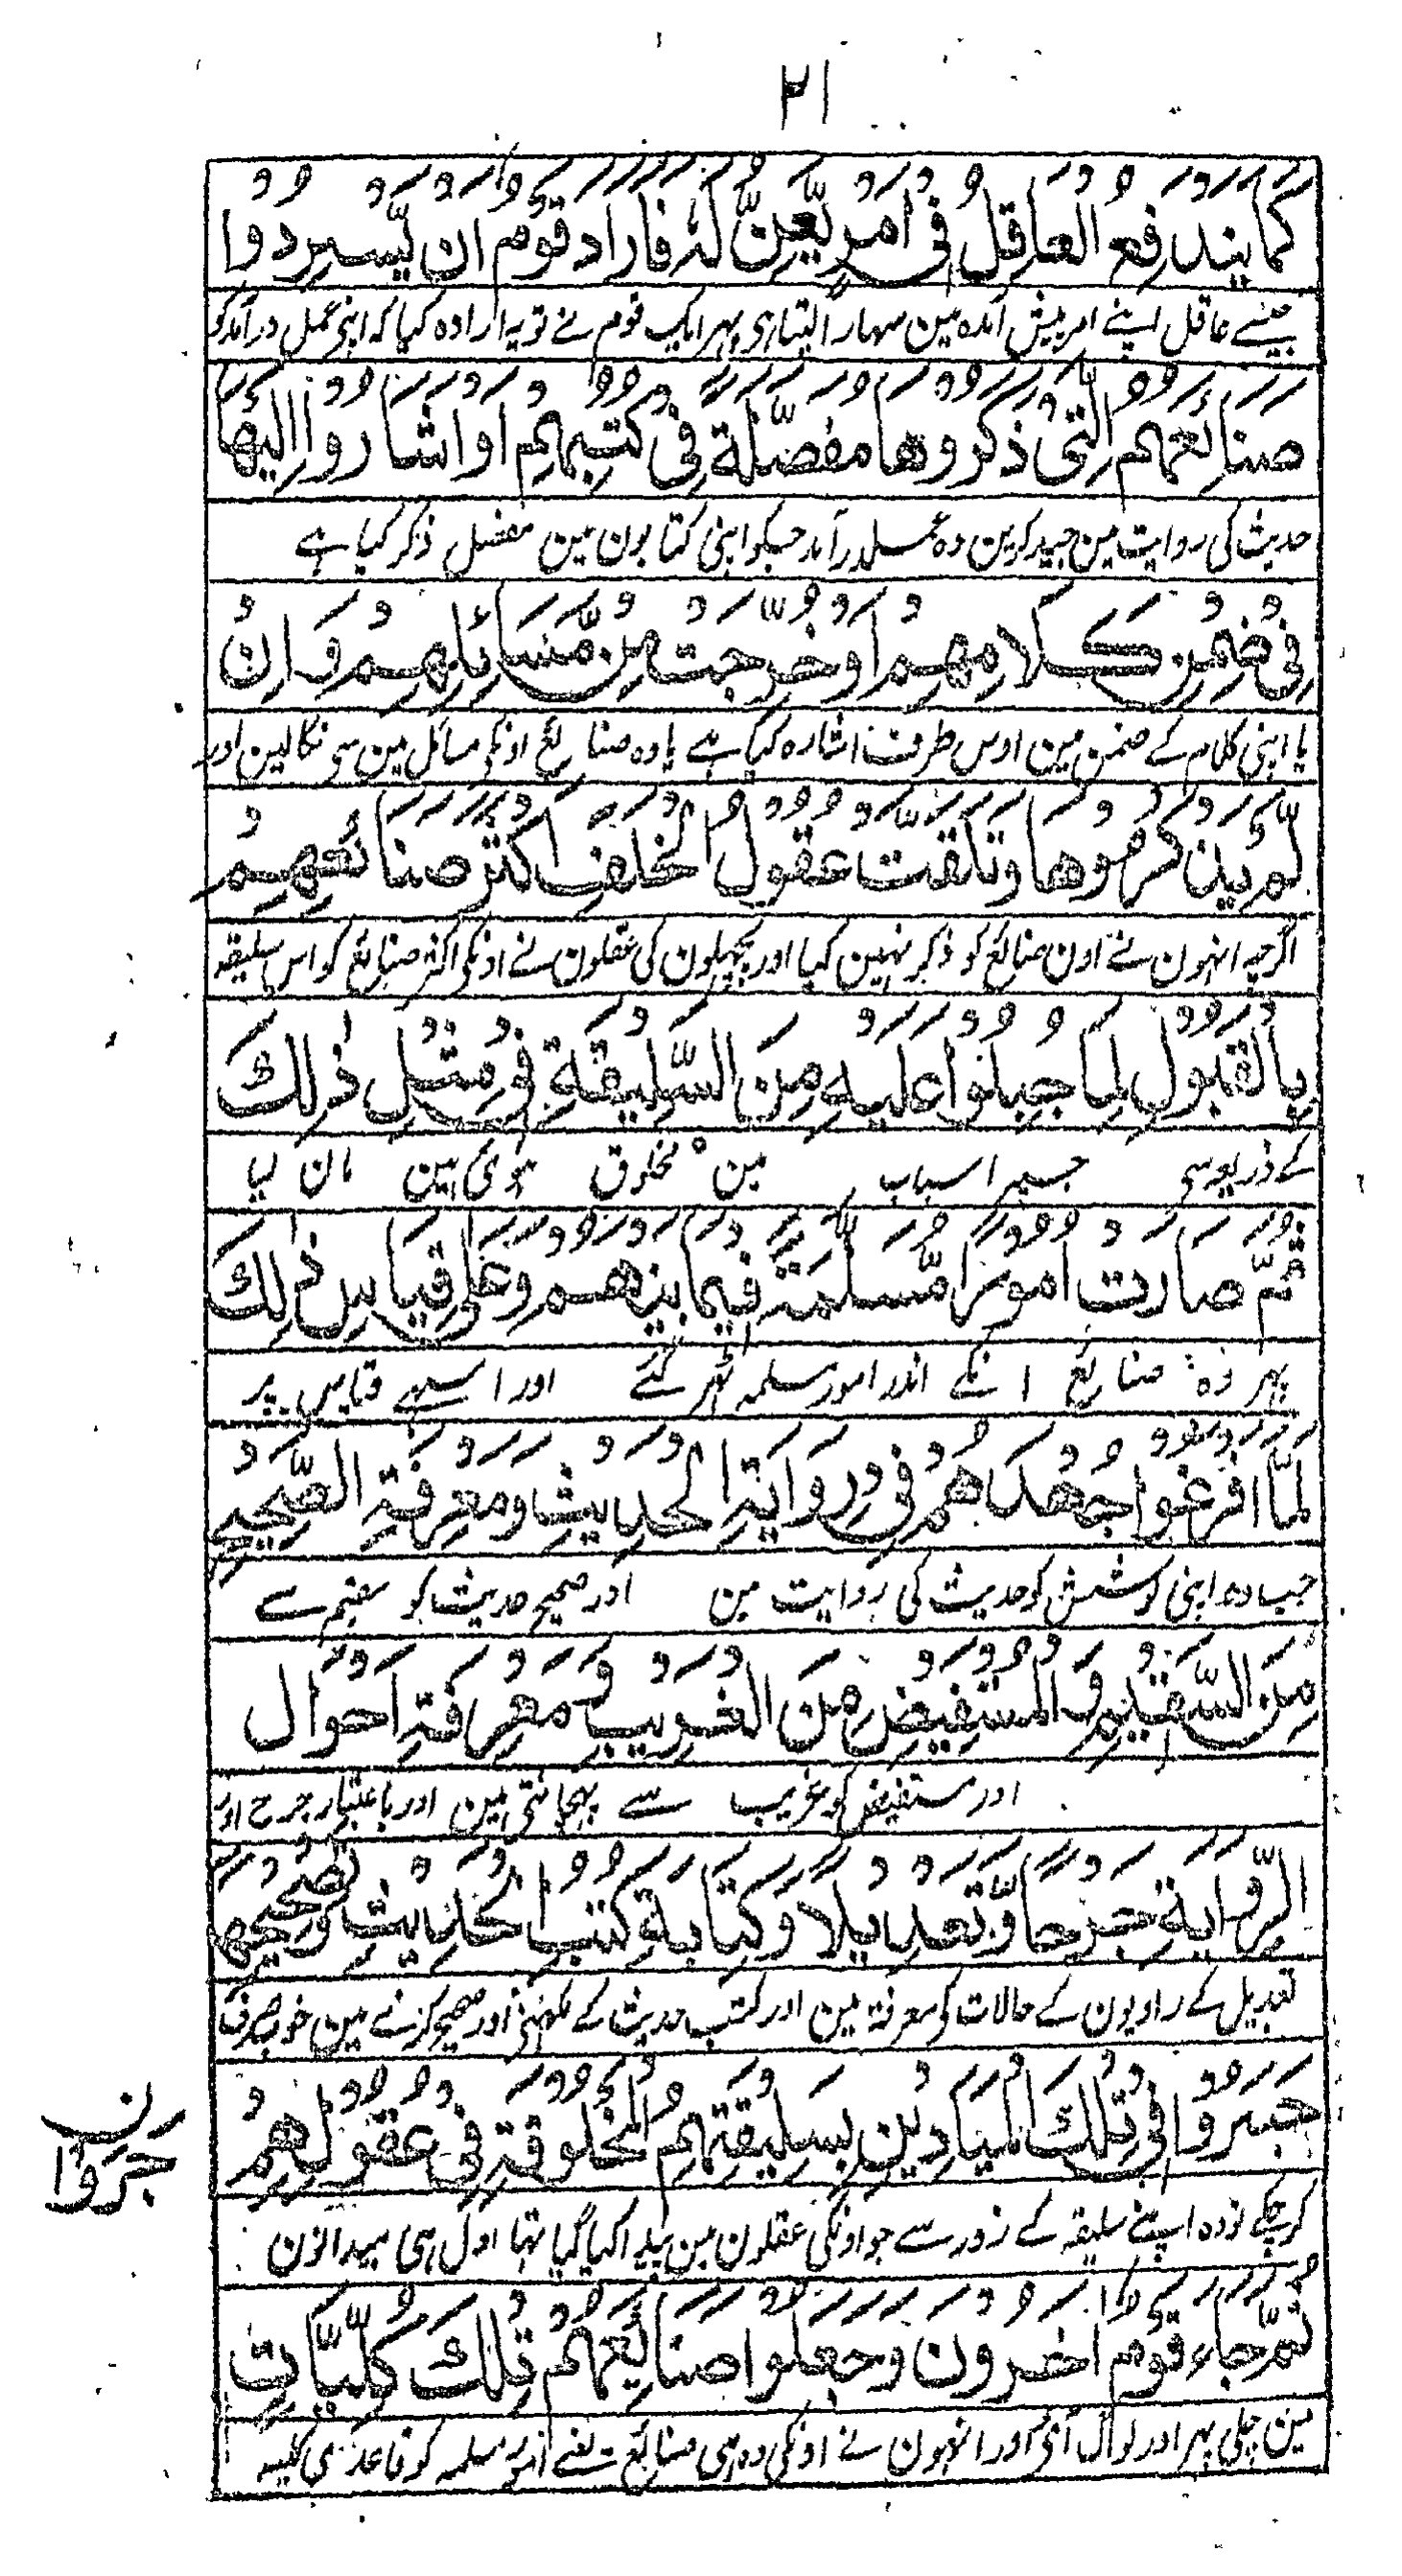 ۲۱
كَمَا يَنْدَفِعُ الْعَاقِلُ فِي أَمْرٍ يَّعِنُّ لَهُ فَأَرَادَ قَوْمٌ أَنْ يَّسْرِدُوْا
جیسے عاقل اپنے امر پیش آمدہ مین سہارا لیتا ہی پہر ایک قوم نے تو یہ ارادہ کیا کہ اپنی عمل درآمد کو
صَنَائِعَهُمُ الَّتِيْ ذَكَرُوْهَا مُفَصَّلَةً فِيْ كُتُبِهِمْ أَوْ أَشَارُوْا إِلَيْهَا
حدیث کی روایت مین کرین وہ عملدرآمد جسکو اپنی کتابون مین مفصل ذکر کیا ہے
فِيْ ضِمْنِ كَلَامِهِمْ أَوْ خُرِّجَتْ مِنْ مَّسَائِلِهِمْ وَإِنْ
یا اپنی کلام کے ضمن مین اوس طرف اشارہ کیا ہے یا وہ صنائع اونکی مسائل مین سی نکالین اور
لَّمْ يَذْكُرُوْهَا وَتَلَقَّتْ عُقُوْلُ الْخَلَفِ أَكْثَرَ صَنَائِعِهِمْ
اگرچہ انہون نے اون صنائع کو ذکر نہین کیا اور پچہلون کی عقلون نے اونکی اکثر صنائع کو اس سلیقہ
بِالْقَبُوْلِ لِمَا جُبِلُوْا عَلَيْهِ مِنَ السَّلِيْقَةِ فِيْ مِثْلِ ذٰلِكَ
کے ذریعہ سی جسپر اسباب مین مخلوق ہوی ہین مان لیا
ثُمَّ صَارَتْ أُمُوْرًا مُّسَلَّمَةً فِيْمَا بَيْنَهُمْ وَعَلٰى قِيَاسِ ذٰلِكَ
پہر وہ صنائع انکے اندر امور مسلمہ ٹہر گئے اور اسہے قیاس پر
لَمَّا أَفْرَغُوْا جُهْدَهُمْ فِيْ رِوَايَةِ الْحَدِيْثِ وَمَعْرِفَةِ الصَّحِيْحِ
جب وہ اپنی کوشش کو حدیث کی روایت مین اور صحیح حدیث کو سقیم سے
مِنَ السَّقِيْمِ وَالْمُسْتَفِيْضِ مِنَ الْغَرِيْبِ وَمَعْرِفَةِ أَحْوَالِ
اور مستفیض کو غریب سے پہچانتی ہین اور باعتبار جرح اور
الرُّوَايَةِ جَرْحًا وَّتَعْدِيْلًا وَكِتَابَةِ كُتُبِ الْحَدِيْثِ وَتَصْحِيْحِهَا
تعدیل کے راویون کے حالات کو معرفتہ مین اور کتب حدیث کے لکہنی اور صحیح کرنے مین خوب صرف
جَرَوْا فِيْ تِلْكَ الْمَيَادِيْنِ بِسَلِيْقَتِهِمُ الْمَخْلُوْقَةِ فِيْ عُقُوْلِهِمْ
جروا ن
کر چکے تو وہ اپنے سلیقہ کے زور سے جو اونکی عقلون مین پیدا کیا گیا تہا اول ہی میدانون
ثُمَّ جَاءَ قَوْمٌ اٰخَرُوْنَ وَجَعَلُوْا صَنَائِعَهُمْ تِلْكَ كُلِّيَّاتٍ
مین چلی پہر اور لوگ آئی اور انہون نے اونکی وہ ہی صنائع یعنے امور مسلمہ کو قاعدی کلیہ